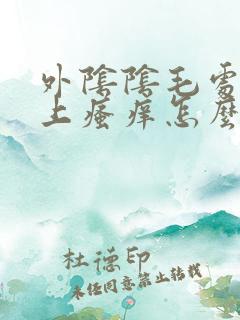 外陰陰毛處
上瘙痒怎麼
杜德印
未经同意禁止转载